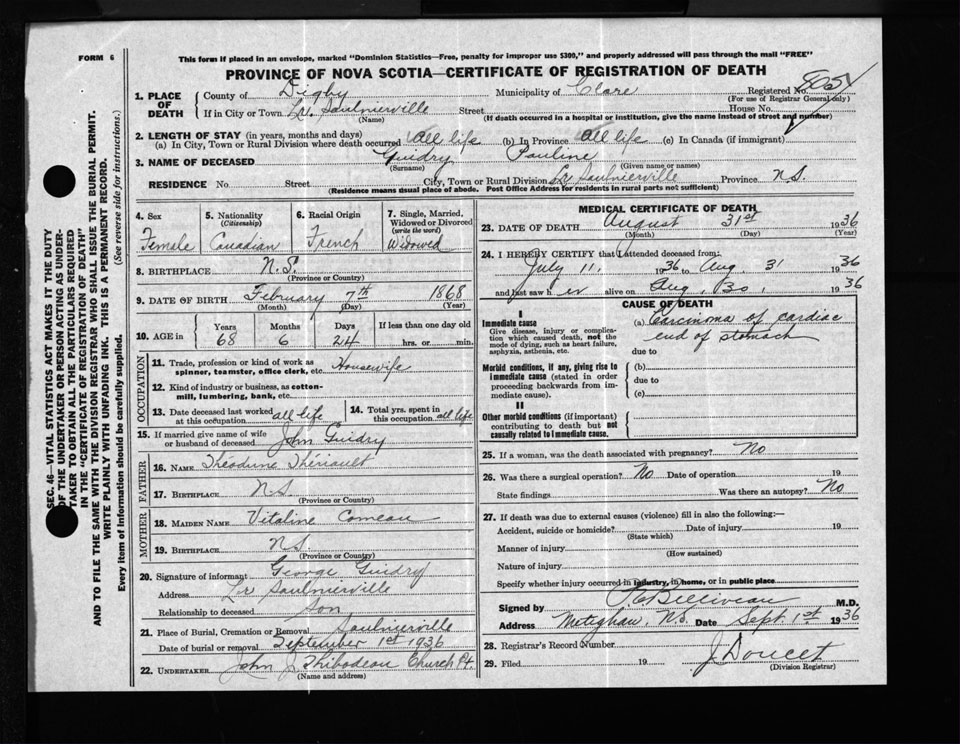 FORM 6
This form if placed in an envelope, marked "Dominion Statistics—Free, penalty for improper use $300," and properly addressed will pass through the mail "FREE"
PROVINCE OF NOVA SCOTIA—CERTIFICATE OF REGISTRATION OF DEATH
SEC. 46—VITAL STATISTICS ACT MAKES IT THE DUTY
OF THE UNDERTAKER OR PERSON ACTING AS UNDER-
TAKER TO OBTAIN ALL THE PARTICULARS REQUIRED
IN THE "CERTIFICATE OF REGISTRATION OF DEATH"
AND TO FILE THE SAME WITH THE DIVISION REGISTRAR WHO SHALL ISSUE THE BURIAL PERMIT.
WRITE PLAINLY WITH UNFADING INK. THIS IS A PERMANENT RECORD.
Every item of Information should be carefully supplied. (See reverse side for instructions.)
1. PLACE OF DEATH County of Digby Municipality of Clare Registered No. 8054
(For use of Registrar General only)
If in City or Town Lr. Saulnierville Street House No.
(Name) (If death occurred in a hospital or institution, give the name instead of street and number)
2. LENGTH OF STAY (in years, months and days)
(a) In City, Town or Rural Division where death occurred All life (b) In Province All life (c) In Canada (if immigrant)
3. NAME OF DECEASED Guidry Pauline
(Surname) (Given name or names)
RESIDENCE No. Street City, Town or Rural Division Lr Saulnierville Province N.S.
(Residence means usual place of abode. Post Office Address for residents in rural parts not sufficient)
4. Sex Female
5. Nationality (Citizenship) Canadian
6. Racial Origin French
7. Single, Married, Widowed or Divorced (write the word) Widowed
8. BIRTHPLACE N.S.
(Province or Country)
9. DATE OF BIRTH February 7th 1868
(Month) (Day) (Year)
10. AGE in Years 68 Months 6 Days 24 If less than one day old hrs. or min.
OCCUPATION
11. Trade, profession or kind of work as spinner, teamster, office clerk, etc. Housewife
12. Kind of industry or business, as cotton-mill, lumbering, bank, etc.
13. Date deceased last worked at this occupation all life
14. Total yrs. spent in this occupation all life
15. If married give name of wife or husband of deceased John Guidry
FATHER
16. NAME Théodune Thériault
17. BIRTHPLACE N.S.
(Province or Country)
MOTHER
18. MAIDEN NAME Vitaline Comeau
19. BIRTHPLACE N.S.
(Province or Country)
20. Signature of informant George Guidry
Address Lr Saulnierville
Relationship to deceased Son
21. Place of Burial, Cremation or Removal Saulnierville
Date of burial or removal September 1st 1936
22. UNDERTAKER John J Thibodeau Church Pt.
(Name and address)
MEDICAL CERTIFICATE OF DEATH
23. DATE OF DEATH August 31st 1936
(Month) (Day) (Year)
24. I HEREBY CERTIFY that I attended deceased from:
July 11, 1936 to Aug 31 1936
and last saw her alive on Aug, 30, 1936
CAUSE OF DEATH
I
Immediate cause
Give disease, injury or complication which caused death, not the mode of dying, such as heart failure, asphyxia, asthenia, etc.
(a) Carcinoma of cardiac
end of stomach
due to
Morbid conditions, if any, giving rise to immediate cause (stated in order proceeding backwards from immediate cause).
(b)
due to
(c)
II
Other morbid conditions (if important) contributing to death but not causally related to immediate cause.
25. If a woman, was the death associated with pregnancy? No
26. Was there a surgical operation? No Date of operation 19
State findings Was there an autopsy? No
27. If death was due to external causes (violence) fill in also the following:—
Accident, suicide or homicide? Date of injury 19
(State which)
Manner of injury
(How sustained)
Nature of injury
Specify whether injury occurred in industry, in home, or in public place
Signed by Belliveau M.D.
Address Meteghan, N.S. Date Sept. 1st 1936
28. Registrar's Record Number
29. Filed 19 J Doucet
(Division Registrar)